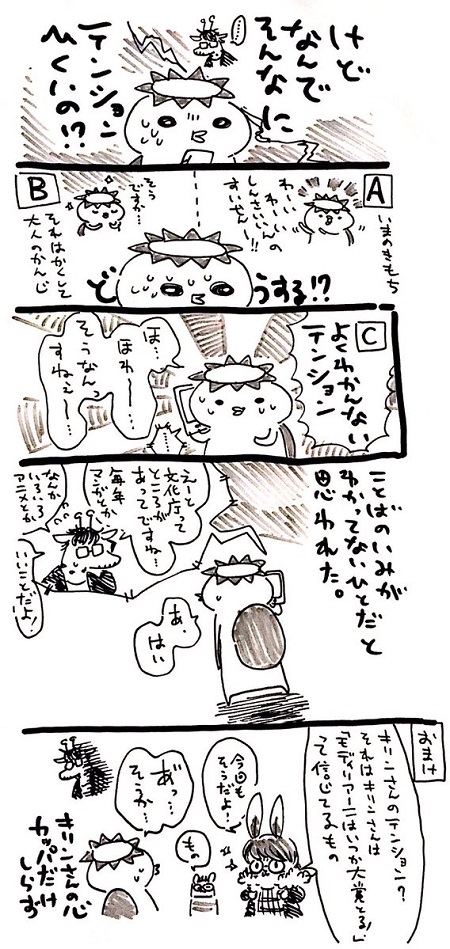 けど
なんで
そんなに
テンション
ひくいの!?
………
いまのきもち
A
わーい
わーい
しんさいいんの
すいせんー!!
B
そう
ですか…
それはかくして
大人のかんじ
どうする!?
C
よくわかんない
テンション
ほ…
ほわー…
そうなんっ
すねぇ〜…
………
ことばのいみが
わかってないひとだと
思われた。
えーと
文化庁って
ところが
あってですね…
毎年
マンガとか
なんか
いろいろ
アニメとか
いいことだよ!
あ、
はい
おまけ
キリンさんのテンション?
それはキリンさんは
「モディリアーニはいつか大賞とる!」
って信じてるもの
今回も
そうだよ!
もの
あっ…
そうか…
キリンさんの心
カッパだけ
しらず